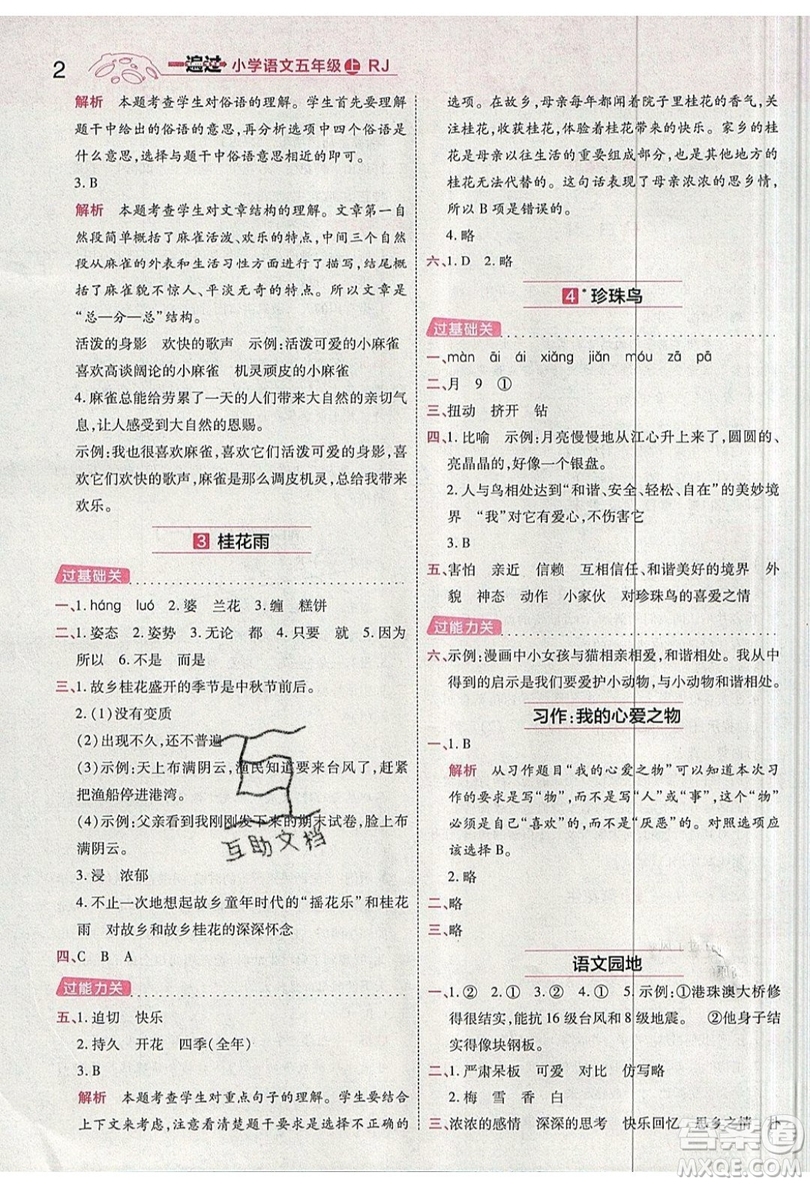 2
一遍过 小学语文五年级上 RJ
解析 本题考查学生对俗语的理解。学生首先要理解
题干中给出的俗语的意思,再分析选项中四个俗语是
什么意思,选择与题干中俗语意思相近的即可。
3. B
解析 本题考查学生对文章结构的理解。文章第一自然
段简单概括了麻雀活泼、欢乐的特点,中间三个自然段
从麻雀的外表和生活习性方面进行了描写,最后总结麻
雀其貌不惊人、平淡无奇的个性特点。所以本文是
“总—分—总”结构。
活泼的身影 欢快的歌声 示例:活泼可爱的小麻雀
喜欢高谈阔论的小麻雀 机灵顽皮的小麻雀
4. 麻雀总能给劳累了一天的人们带来大自然的亲切气
息,让人感到大自然的恩赐。
示例:我也很喜欢麻雀,喜欢它们欢快活泼的身影,喜
欢它们欢快的歌声,麻雀总是那么调皮机灵,给我带来
欢乐。
3 桂花雨
过基础关
一、1. háng luó 2. 婆 兰花 3. 缠 糕饼
二、1. 姿态 2. 姿势 3. 无论 都 4. 只要 就 5. 因为
所以 6. 不是 而是
三、1. 故乡桂花盛开的季节是中秋节前后。
2. (1)没有变质
(2)出现不久,还不普遍
(3)示例:天上布满阴云,渔民知道要来台风了,赶紧
把渔船停进港湾。
(4)示例:父亲看到我刚刚发下来的期末试卷,脸上布
满阴云。
3. 浸 浓郁
4. 不止一次地想起故乡童年时代的“摇花乐”和桂花
雨 对故乡和故乡桂花的深深怀念
四、C B A
过能力关
五、1. 迫切 快乐
2. 持久 开花 四季(全年)
3. B
解析 本题考查学生对重点句子的理解。学生要结合
上下文来考虑,注意看清楚题干要求选择的是错误的
选项。在故乡,母亲每年都闻着院子里桂花的香气,关
注桂花,收获桂花,享受桂花带来的快乐。家乡的桂
花是母亲生活的重要组成部分,是其他地方的
桂花无法代替的。这句话表现了母亲浓浓的思乡情,
所以 B 项是错误的。
4. 略
六、1. D 2. 略
4* 珍珠鸟
过基础关
一、màn āi ái xiǎng jiǎn móu zā pā
二、月 9 ①
三、扭动 挤开 钻
四、1. 比喻 示例:月亮慢慢地从江心升上来了,圆圆的、
亮晶晶的,好像一个银盘。
2. 人与鸟相处达到“和谐、安全、轻松、自在”的美妙境
界 “我”对鸟儿有爱心,不伤害它
3. B
五、害怕 亲近 信赖 互相信任、和谐美好的境界 外
貌 神态 动作 小家伙 对珍珠鸟的喜爱之情
过能力关
六、示例:漫画中小女孩与猫相亲相爱,和谐相处。我从中
得到的启示是我们要爱护小动物,与小动物和谐相处。
习作:我的心爱之物
一、1. B
解析 从习作题目“我的心爱之物”可以知道本次习
作的要求是写“物”,而不是写“人”或“事”,这个“物”
必须是自己“喜欢”的,而不是“厌恶”的。对照要求应
该选择 B。
2. 略
二、略
三、略
语文园地
一、1. ② 2. ① 3. ② 4. ① 5. 示例:①港珠澳大桥修
得很结实,能抗 16 级台风和 8 级地震。 ②他身子结
实得像块钢板。
二、1. 严肃呆板 可亲 可爱 对比 仿写略
2. 梅 雪 香 白
三、浓浓的感情 深深的思考 快乐回忆 思乡之情 扑
互助文档
答案圈
MXQE.COM